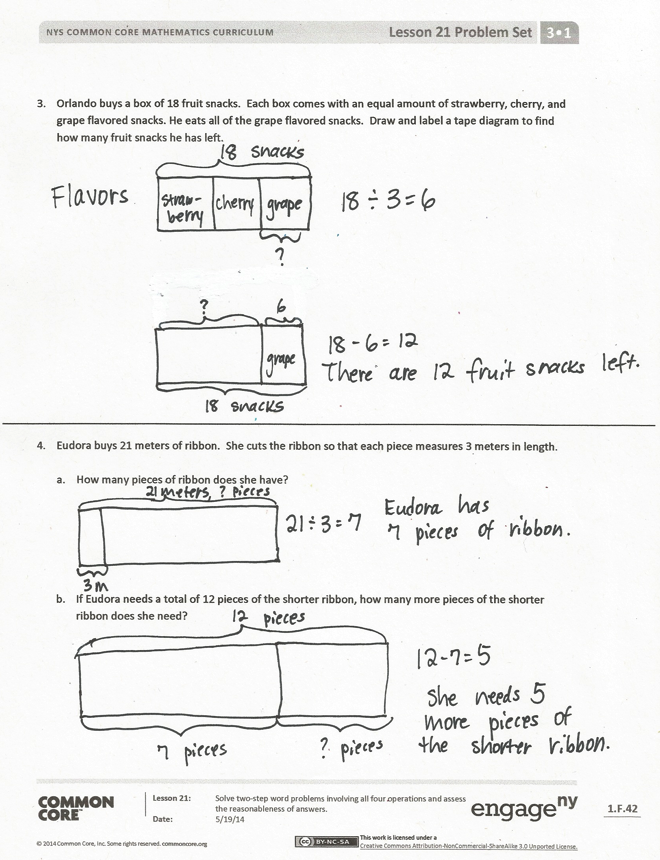 NYS COMMON CORE MATHEMATICS CURRICULUM Lesson 21 Problem Set 3•1
3. Orlando buys a box of 18 fruit snacks. Each box comes with an equal amount of strawberry, cherry, and
grape flavored snacks. He eats all of the grape flavored snacks. Draw and label a tape diagram to find
how many fruit snacks he has left.
18 snacks
Flavors straw-berry cherry grape 18 ÷ 3 = 6
?
? 6
grape 18 - 6 = 12
There are 12 fruit snacks left.
18 snacks
4. Eudora buys 21 meters of ribbon. She cuts the ribbon so that each piece measures 3 meters in length.
a. How many pieces of ribbon does she have?
21 meters, ? pieces
21 ÷ 3 = 7 Eudora has
7 pieces of ribbon.
3 m
b. If Eudora needs a total of 12 pieces of the shorter ribbon, how many more pieces of the shorter
ribbon does she need?
12 pieces
12 - 7 = 5
She needs 5
more pieces of
the shorter ribbon.
7 pieces ? pieces
COMMON CORE™ Lesson 21: Solve two-step word problems involving all four operations and assess
the reasonableness of answers.
Date: 5/19/14
engage ny 1.F.42
© 2014 Common Core, Inc. Some rights reserved. commoncore.org
cc BY-NC-SA This work is licensed under a
Creative Commons Attribution-NonCommercial-ShareAlike 3.0 Unported License.